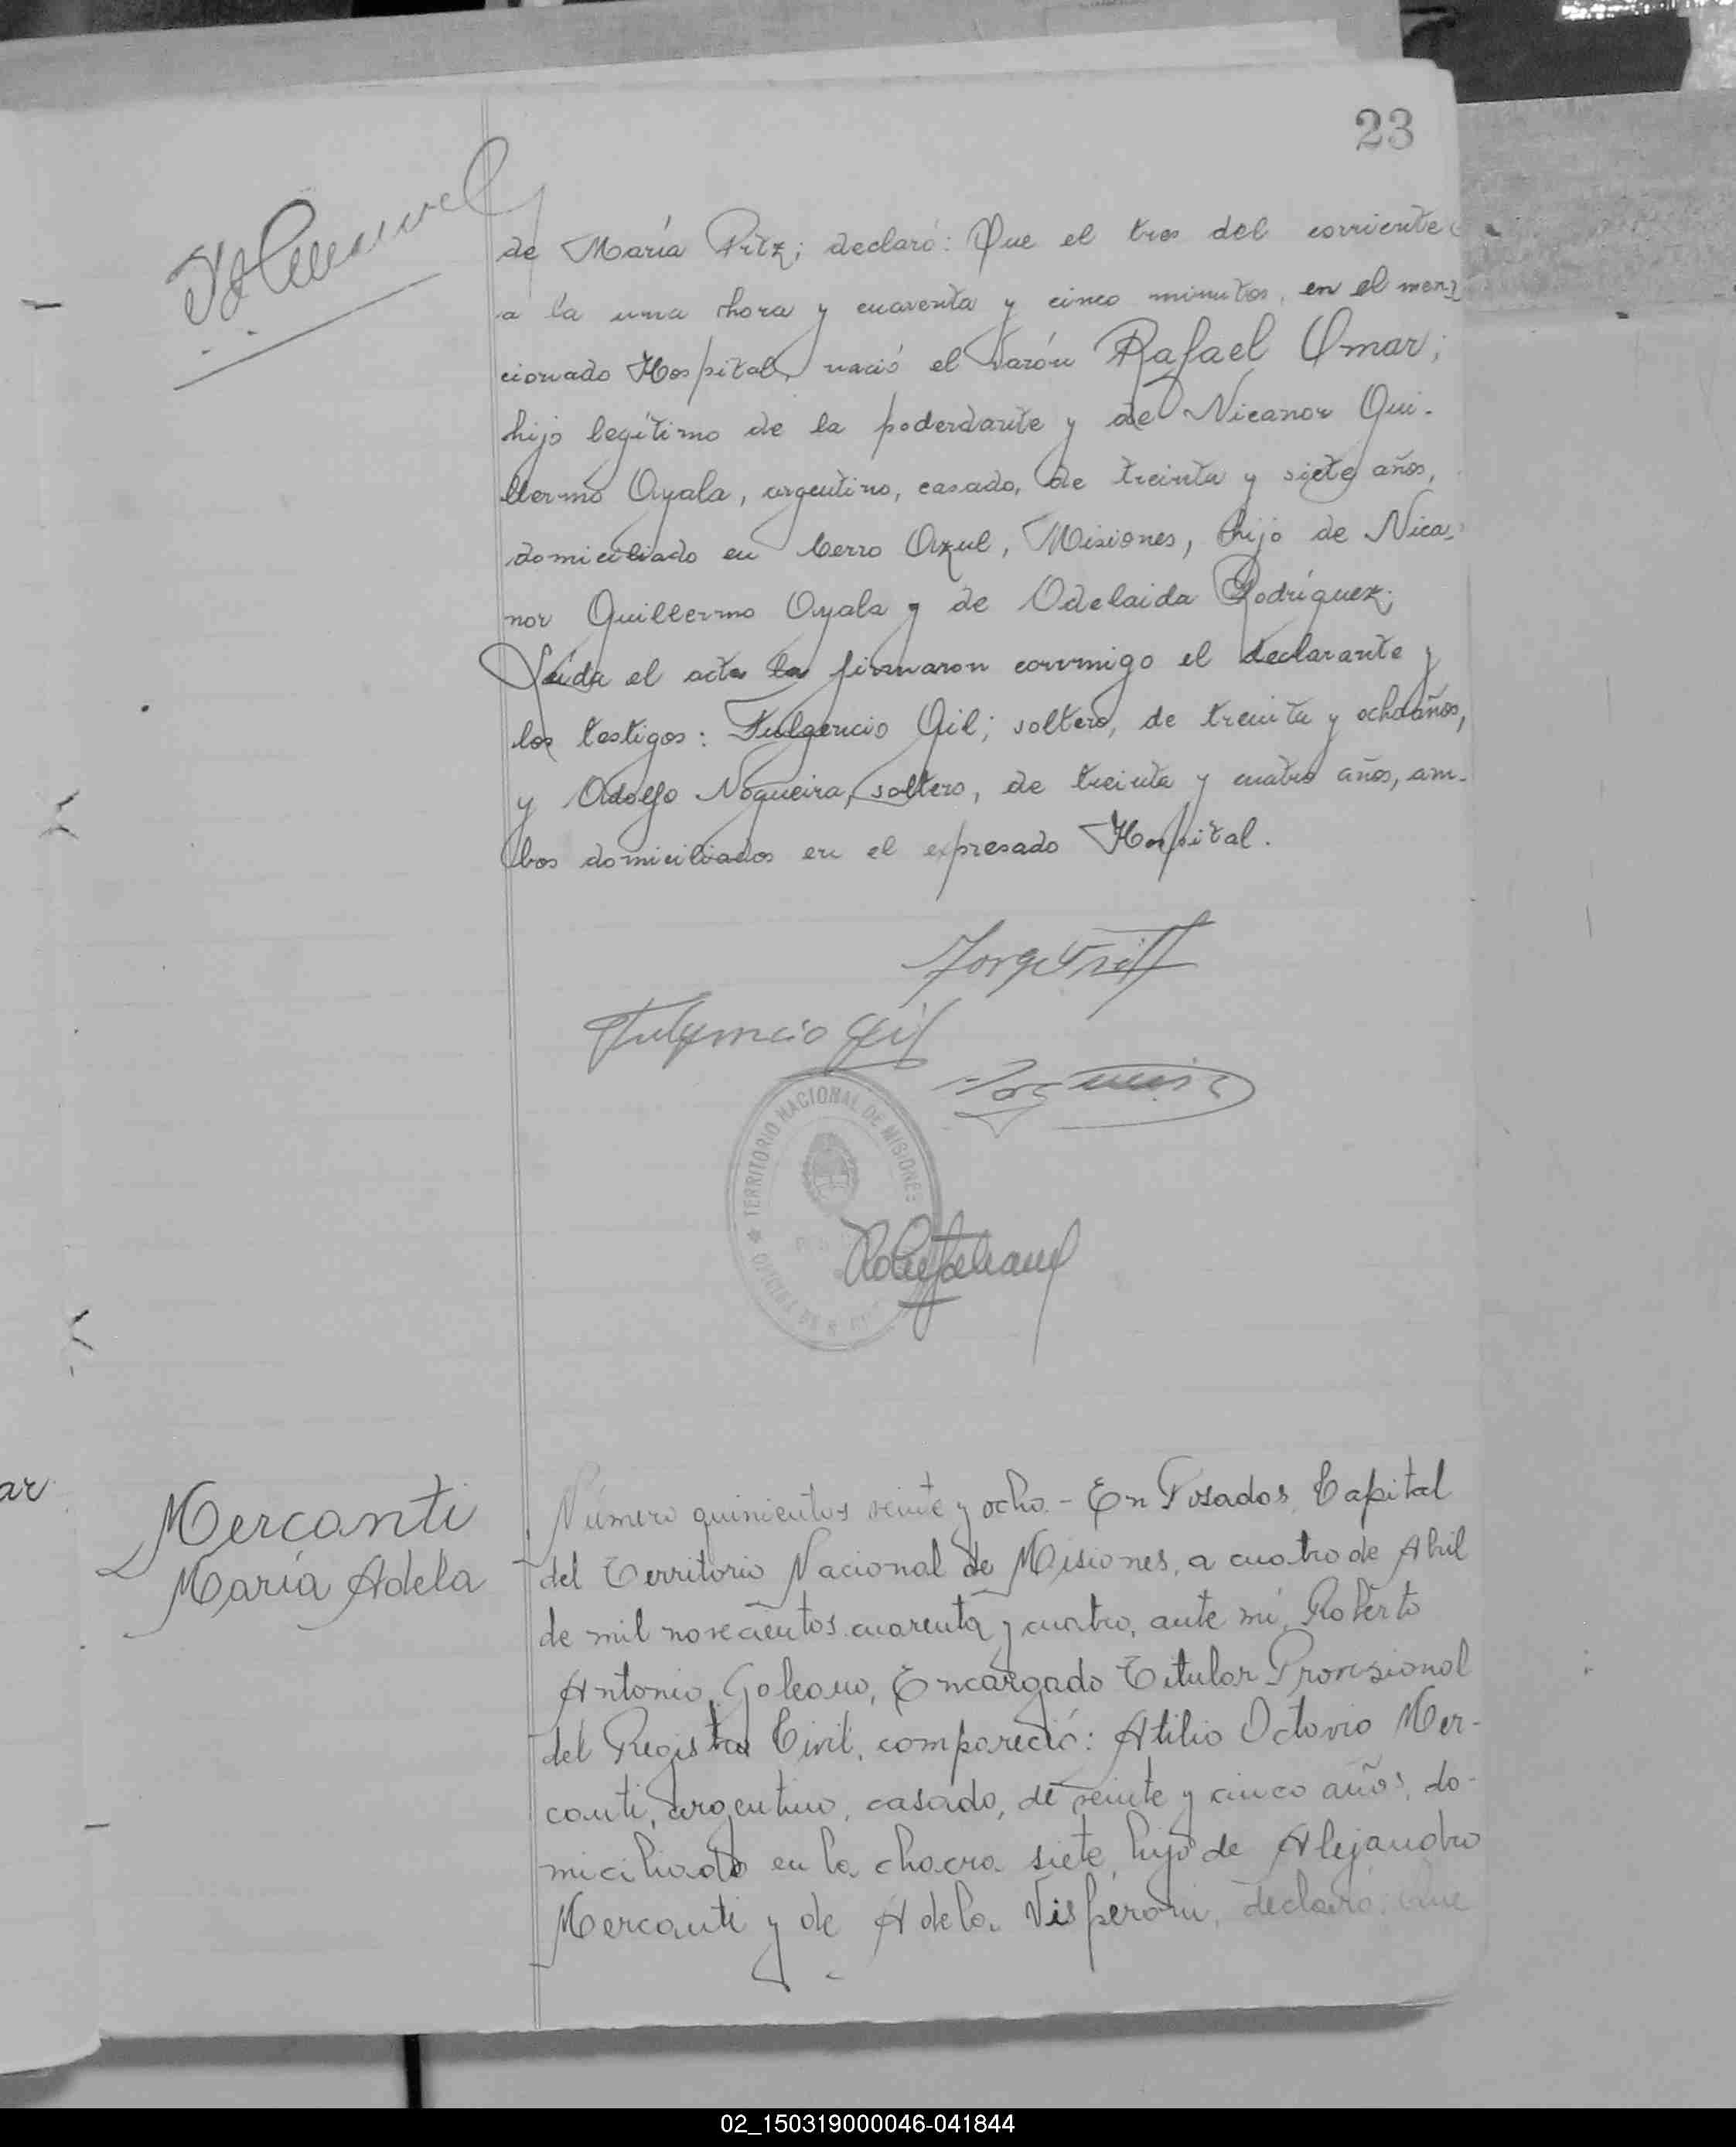 23
de María Pitz; declaró: Que el tres del corriente
a la una hora y cuarenta y cinco minutos, en el men-
cionado Hospital, nació el varón Rafael Omar;
hijo legítimo de la poderdante y de Nicanor Gui-
llermo Ayala, argentino, casado, de treinta y siete años,
domiciliado en Cerro Azul, Misiones, hijo de Nica-
nor Guillermo Ayala y de Adelaida Rodríguez;
Leída el acta la firmaron conmigo el declarante y
los testigos: Fulgencio Gil; soltero, de treinta y ocho años,
y Adolfo Nogueira, soltero, de treinta y cuatro años, am-
bos domiciliados en el expresado Hospital.
Fulgencio Gil
TERRITORIO NACIONAL DE MISIONES
ar
Mercanti
María Adela
Número quinientos veinte y ocho.- En Posadas, Capital
del Territorio Nacional de Misiones, a cuatro de Abril
de mil novecientos cuarenta y cuatro, ante mí, Roberto
Antonio Galeano, Encargado Titular Provisional
del Registro Civil, compareció: Atilio Octavio Mer-
canti, argentino, casado, de veinte y cinco años, do-
miciliado en la chacra siete, hijo de Alejandro
Mercanti y de Adela Visperoni, declaró: Que
02_150319000046-041844